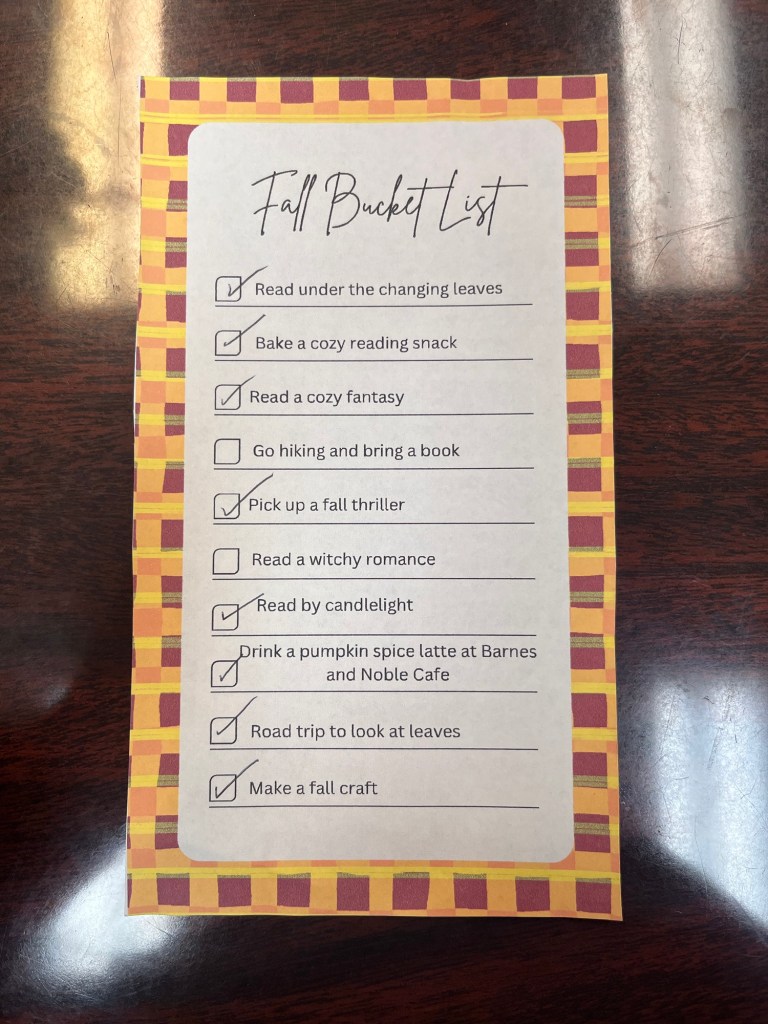 Fall Bucket List
Read under the changing leaves
Bake a cozy reading snack
Read a cozy fantasy
Go hiking and bring a book
Pick up a fall thriller
Read a witchy romance
Read by candlelight
Drink a pumpkin spice latte at Barnes
and Noble Cafe
Road trip to look at leaves
Make a fall craft